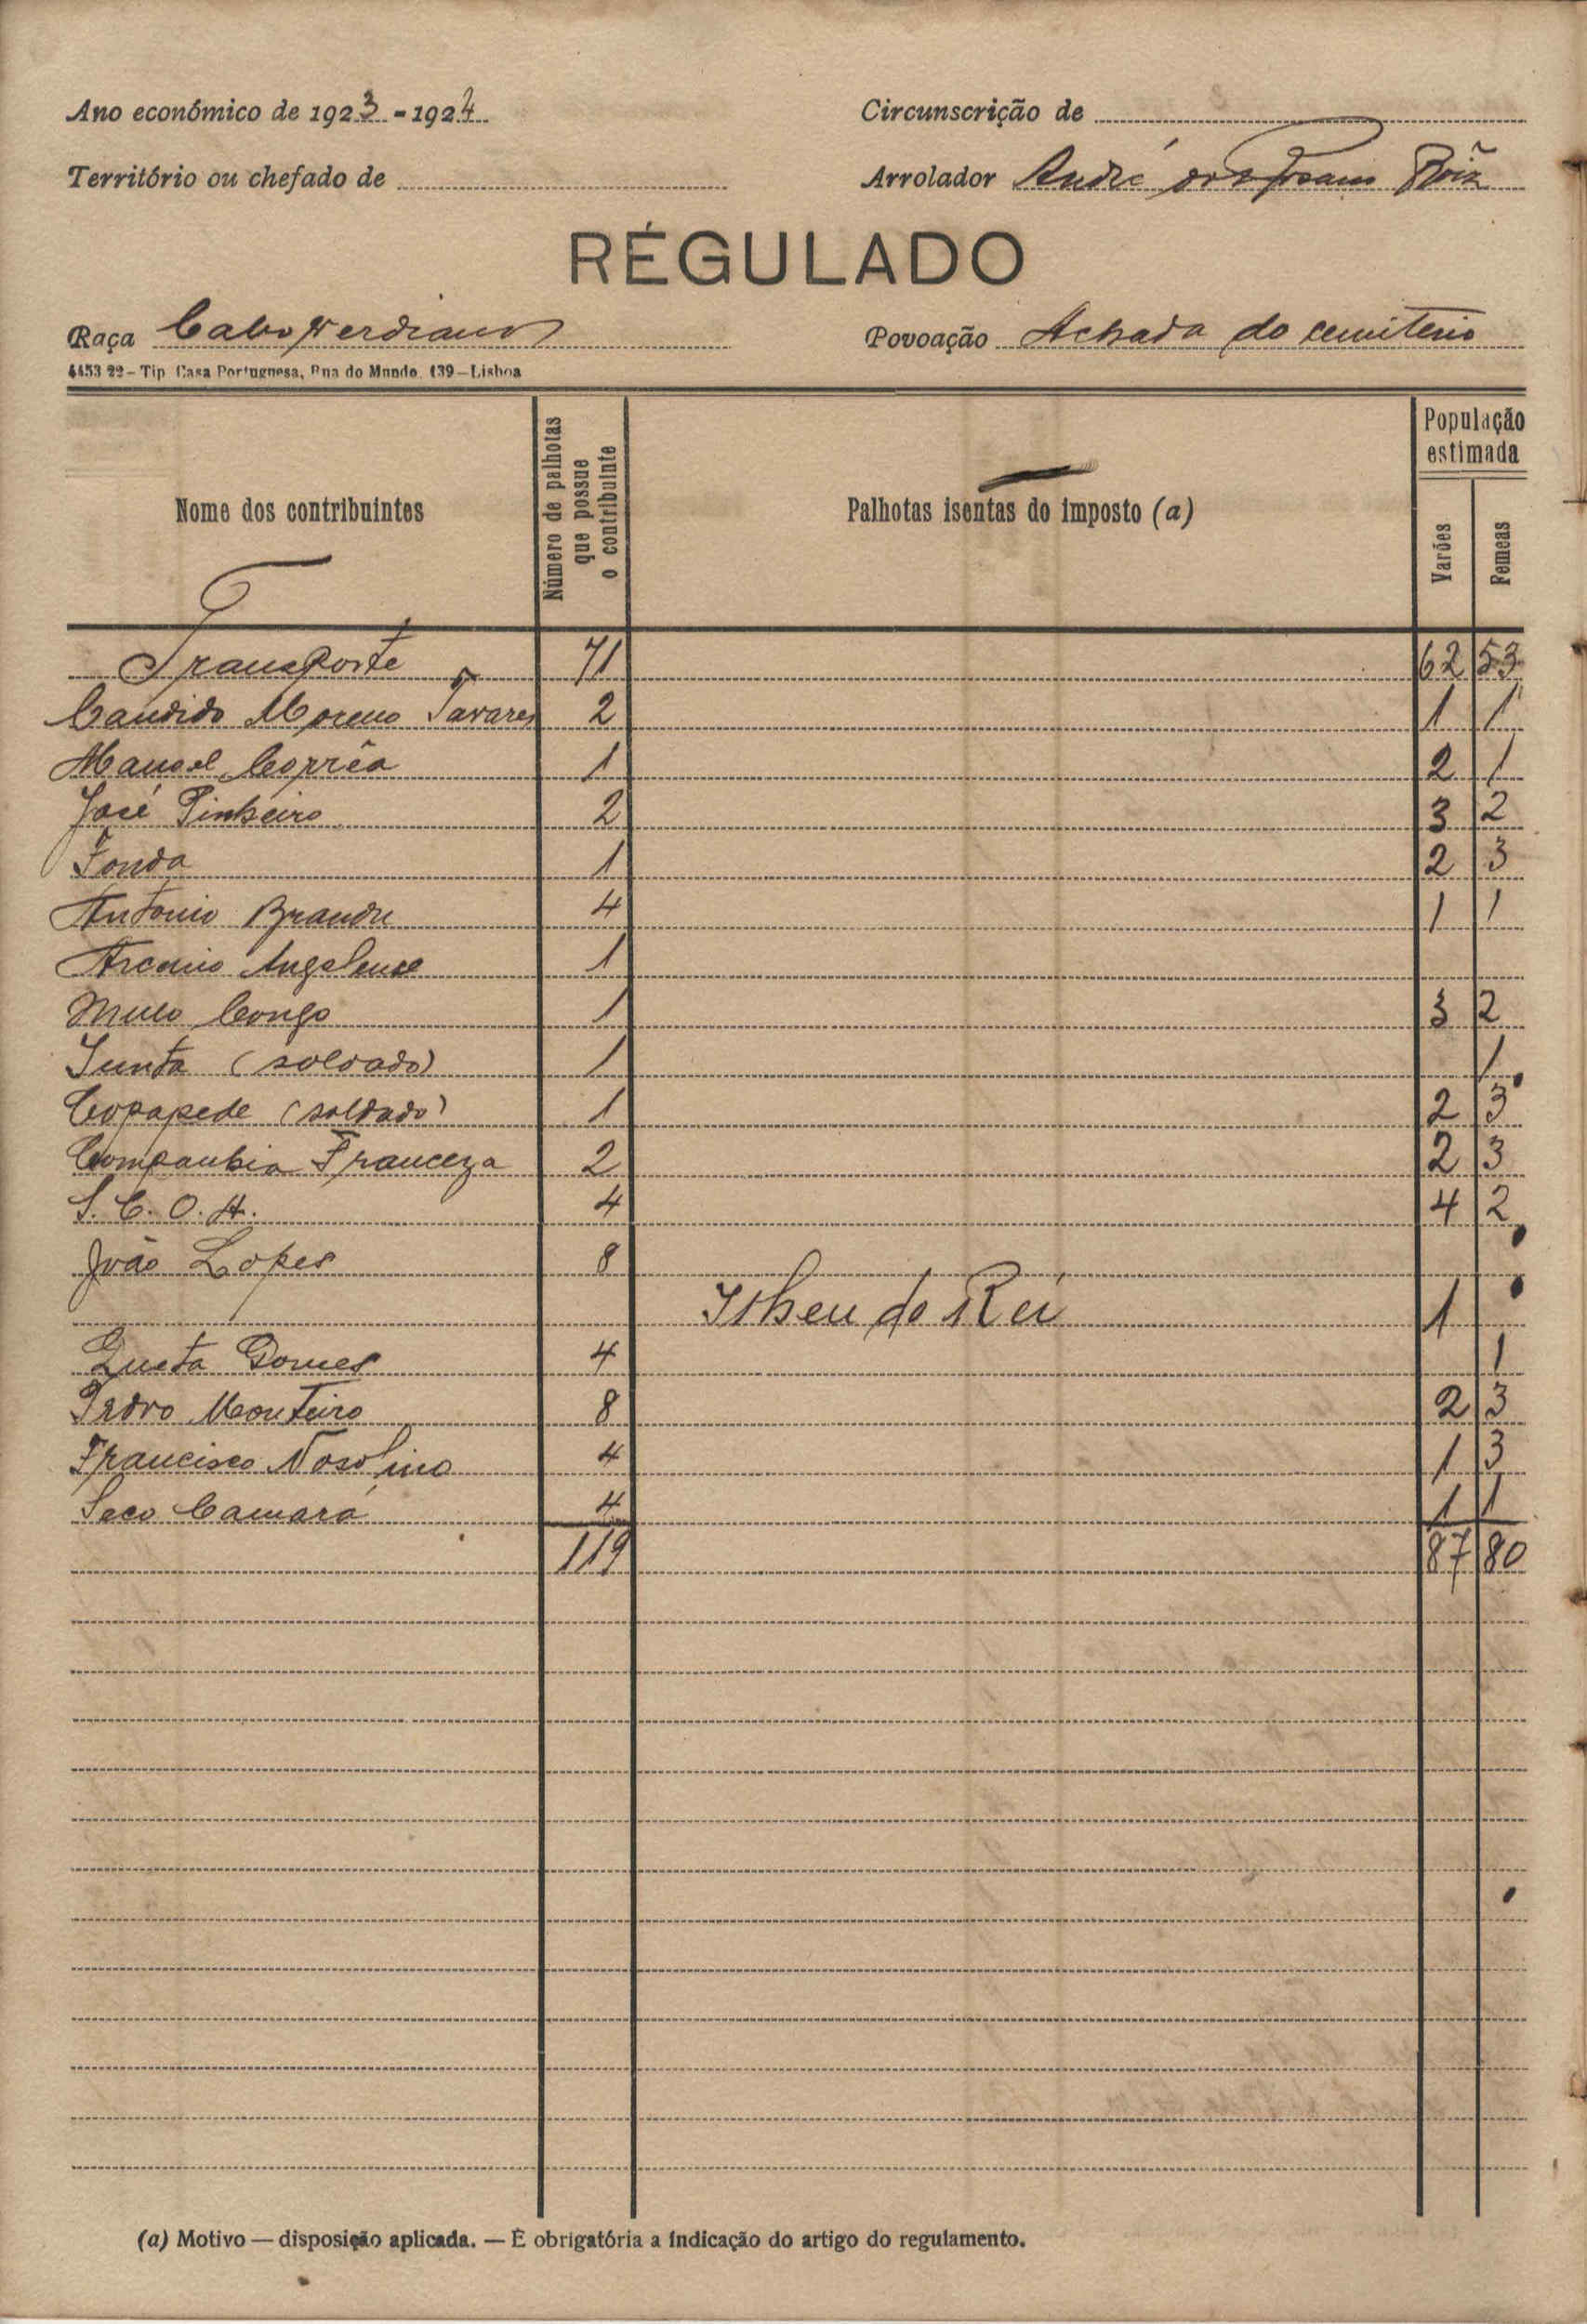 Ano económico de 1923-1924
Circunscrição de
Território ou chefado de
Arrolador André
RÉGULADO
Raça Caboverdianos
Povoação Achada do cemiterio
4453 22 – Tip. Casa Portuguesa, Rua do Mundo, 139 – Lisboa
Nome dos contribuintes
Número de palhotas que possue o contribuinte
Palhotas isentas do imposto (a)
População estimada
Varões
Femeas
Transporte 71 62 53
Candido Moreno Tavares 2 1 1
Manoel Corrêa 1 2 1
José Pinheiro 2 3 2
Fonda 1 2 3
Antonio Brandu 4 1 1
Arcenio Angolense 1
Mulo Congo 1 3 2
Junta (soldado) 1 1
Copapede (soldado) 1 2 3
Companhia Franceza 2 2 3
S. C. O. A. 4 4 2
João Lopes 8
Ilheu do Rei 1
Queta Gomes 4 1
Pedro Monteiro 8 2 3
Francisco Nosolino 4 1 3
Seco Camará 4 1 1
119 87 80
(a) Motivo — disposição aplicada. — É obrigatória a indicação do artigo do regulamento.